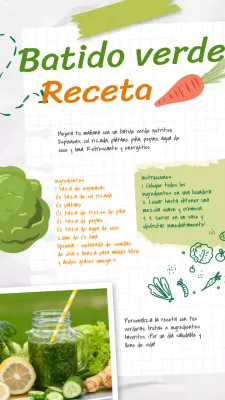 Batido verde
Receta
Mejora tu mañana con un batido verde nutritivo.
Espinacas, col rizada, plátano, piña, pepino, agua de
coco y lima. Refrescante y energético.
Ingredientes:
1 taza de espinacas
1/2 taza de col rizada
1/2 plátano
1/2 taza de trozos de piña
1/2 taza de pepino
1 taza de agua de coco
Zumo de 1/2 lima
Opcional: cucharada de semillas
de chía o linaza para añadir fibra
y ácidos grasos omega-3
Instrucciones:
1. Coloque todos los
ingredientes en una licuadora.
2. Licuar hasta obtener una
mezcla suave y cremosa.
3. Servir en un vaso y
disfrutar inmediatamente!
Personaliza la receta con tus
verduras, frutas o ingredientes
favoritos. ¡Por un día saludable y
lleno de vida!